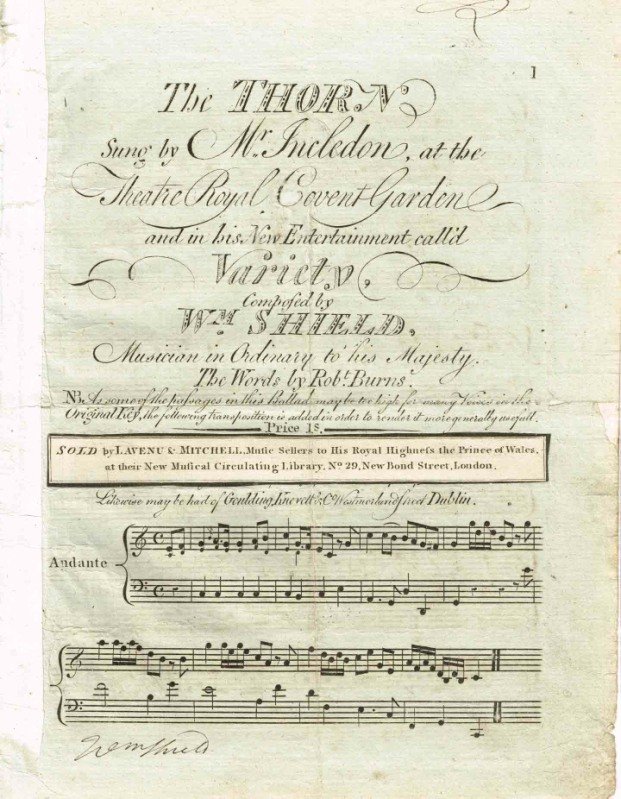 1
The THORN
Sung by Mr. Incledon, at the
Theatre Royal Covent Garden
and in his New Entertainment call'd
Variety,
Composed by
WM SHIELD,
Musician in Ordinary to his Majesty.
The Words by Robt. Burns.
NB. As some of the passages in this Ballad may be too high for many Voices in the
Original Key, the following transposition is added in order to render it more generally usefull.
Price 1s.
SOLD by LAVENU & MITCHELL, Music Sellers to His Royal Highness the Prince of Wales,
at their New Musical Circulating Library, No 29, New Bond Street, London.
Likewise may be had of Goulding, Knevett & Co. Westmorland Street Dublin.
Andante
Wm Shield